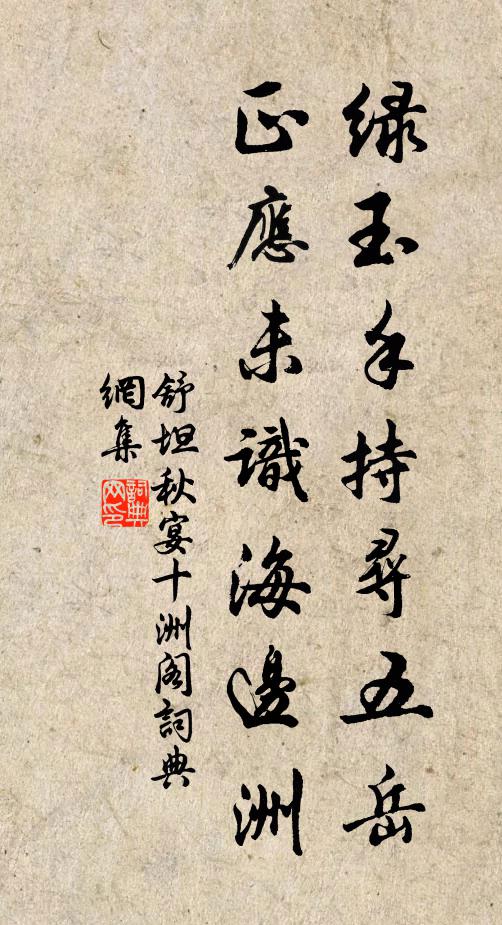 绿玉手持尋五岳
正應未識海邊洲
舒坦秋宴十洲阁詞典
網集
詞典
网印